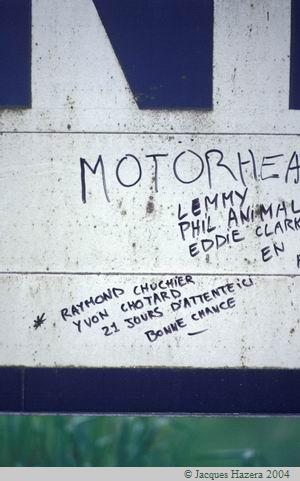 MOTORHEA
LEMMY
PHIL ANIMAL
EDDIE CLARK
EN
* RAYMOND CHUCHIER
YVON CHOTARD
21 JOURS D'ATTENTE ICI
BONNE CHANCE
© Jacques Hazera 2004